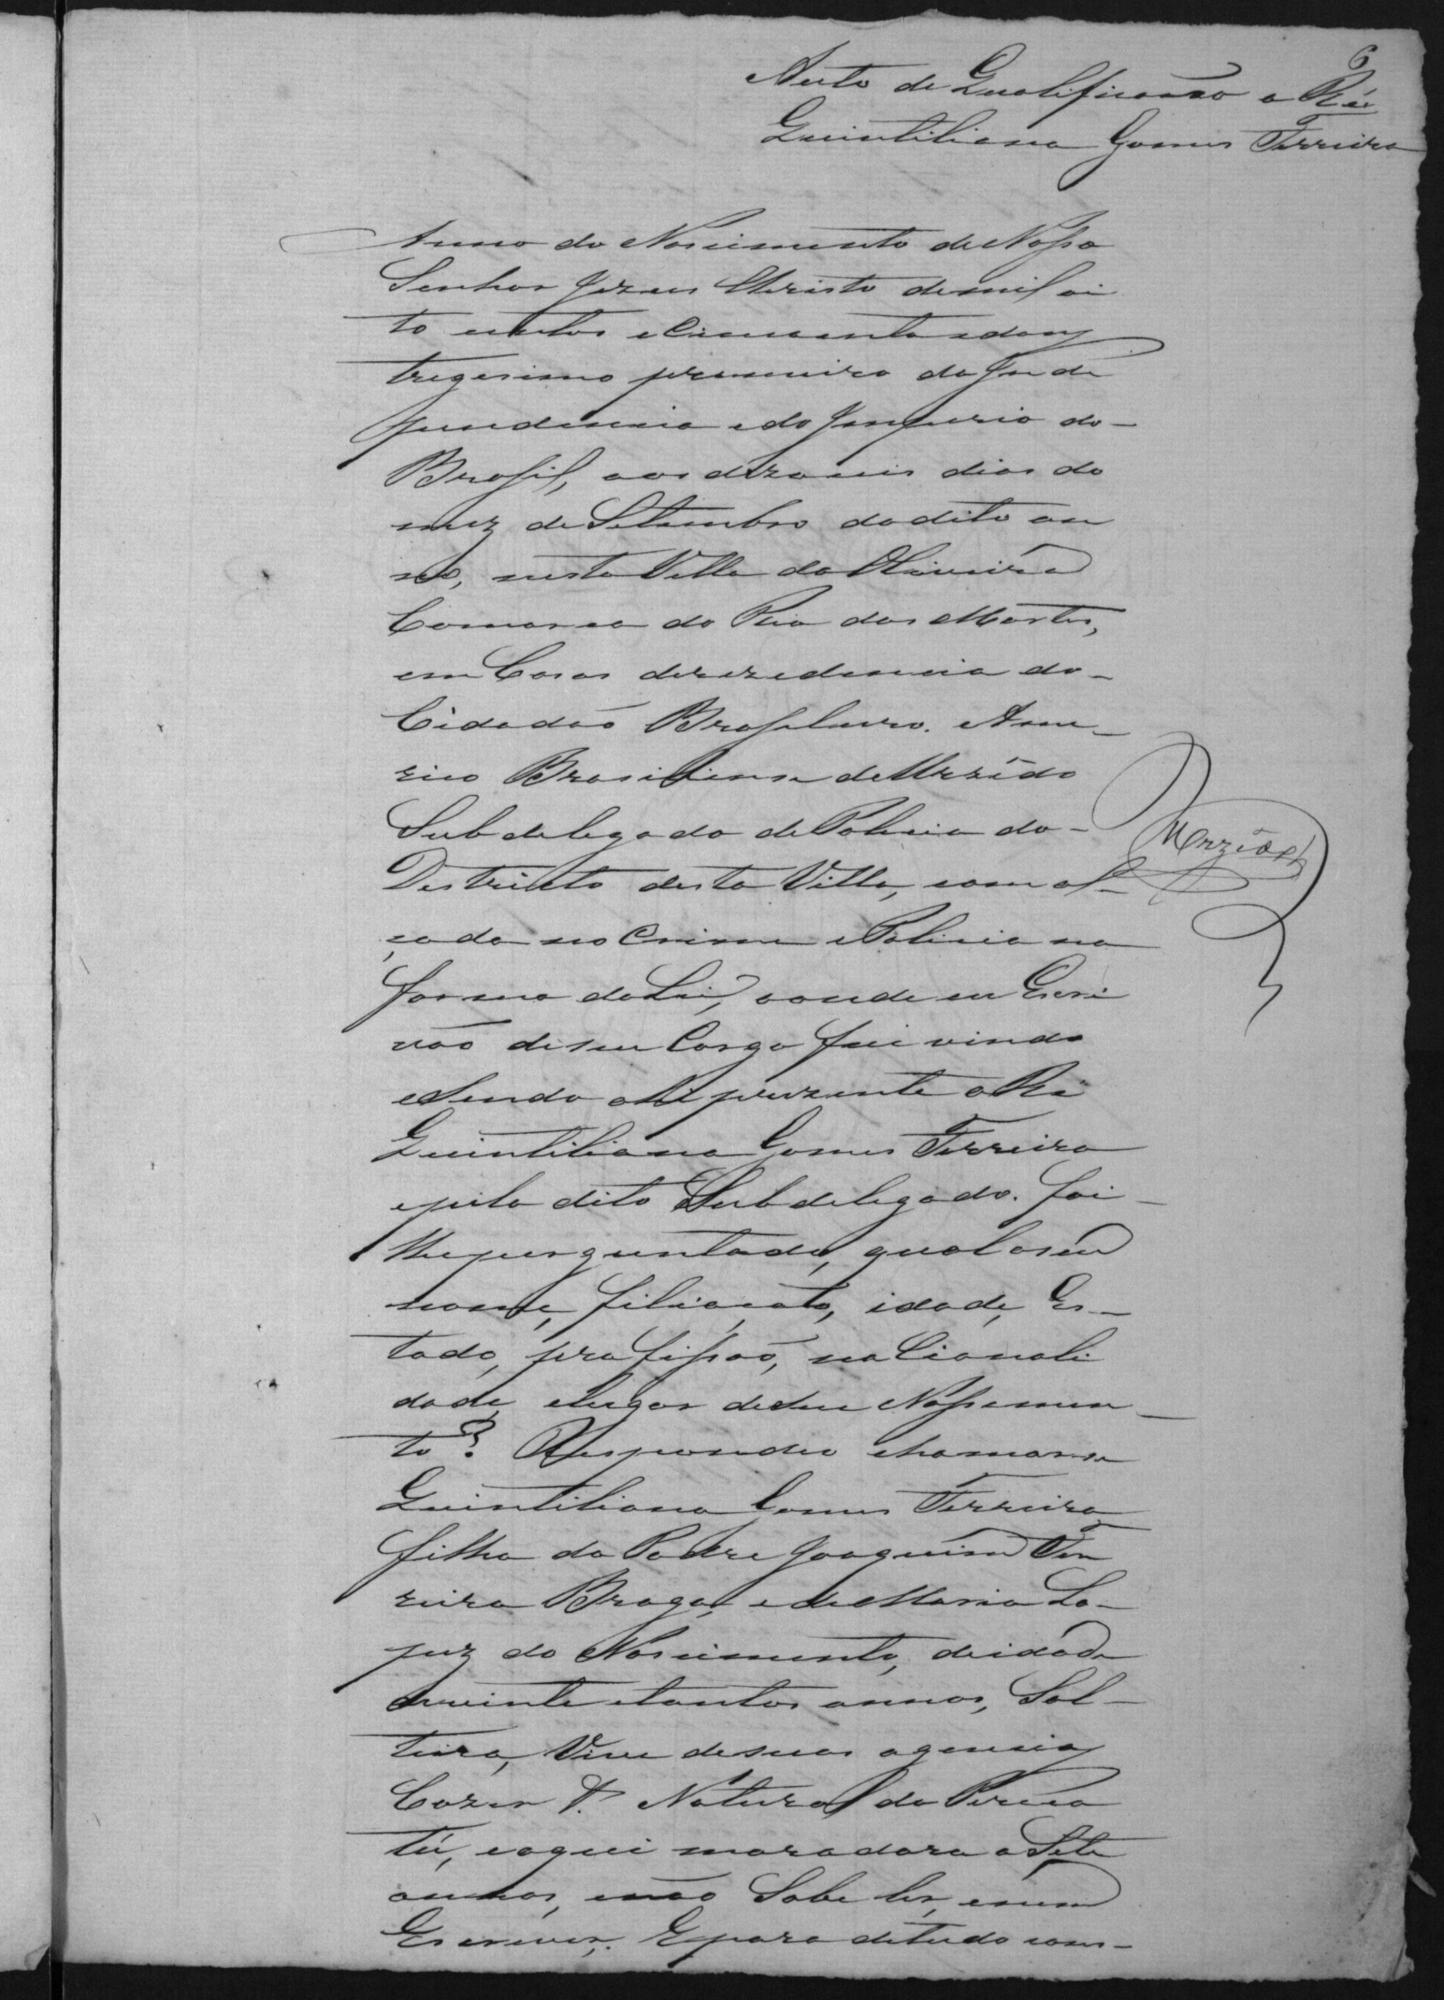 6
Auto de Qualificação a Ré
Quintiliana Gomes Ferreira
Anno do Nascimento de Nosso
Senhor Jezus Christo demil oi
to centos e Cincoenta edous
trigesimo primeiro da Inde
pendencia edo Imperio do
Brasil, aos dezaseis dias do
mez de Setembro dodito an
no, nesta Villa da Oliveira
Comarca do Rio das Mortes,
em Casas derezedencia do
Cidadão Brasileiro Ame
rico Brasiliense de Urzédo
Subdelegado de Policia do
Destricto desta Villa, com al
çada no Crime e Policia na
forma da Lei, aonde eu Escri
vão deseu Cargo fui vindo
esendo ahi prezente a Ré
Quintiliana Gomes Ferreira
epelo dito Subdelegado foi
lhe perguntado, qual oseu
nome, filiação, idade, Es
tado, profissão, naCionali
dade, elugar deseu Nassemen
to? Respondeo chamarse
Quintiliana Gomes Ferreira
filha do Padre Joaquim Fer
reira Braga, e de Maria Lo
pez do Nascimento, deidade
vinte etantos annos, Sol
teira, Vive desuas agencias
Cozer &. Natural do Piraca
tú, eaqui moradora a Sete
annos, enão Sabe ler, enem
Escrever. Epara detudo cons
Urzêdo